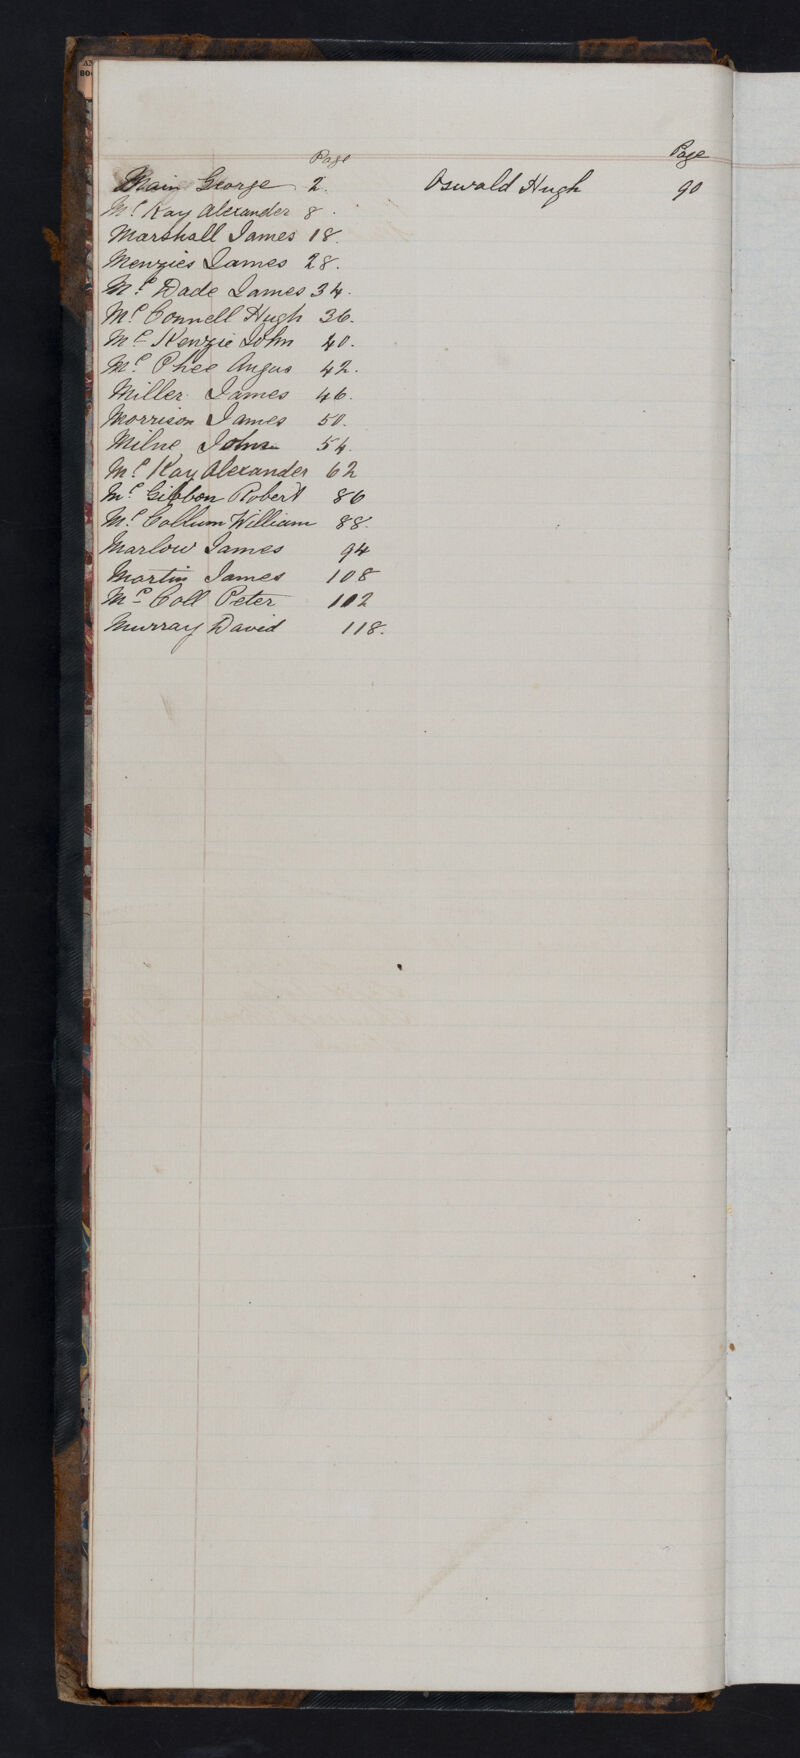 Page
Main George 2.
Mc Kay Alexander 8.
Marshall James 18.
Menzies James 28.
Mc Dade James 34.
Mc Connell Hugh 36.
Mc Kenzie John 40.
Mc Phee Angus 42.
Miller James 46.
Morrison James 50.
Milne John 54.
Mc Kay Alexander 62
Mc Gibbon Robert 86
Mc Collum William 88.
Marlow James 94
Martin James 108
Mc Coll Peter 102
Murray David 118.
Page
Oswald Hugh 90